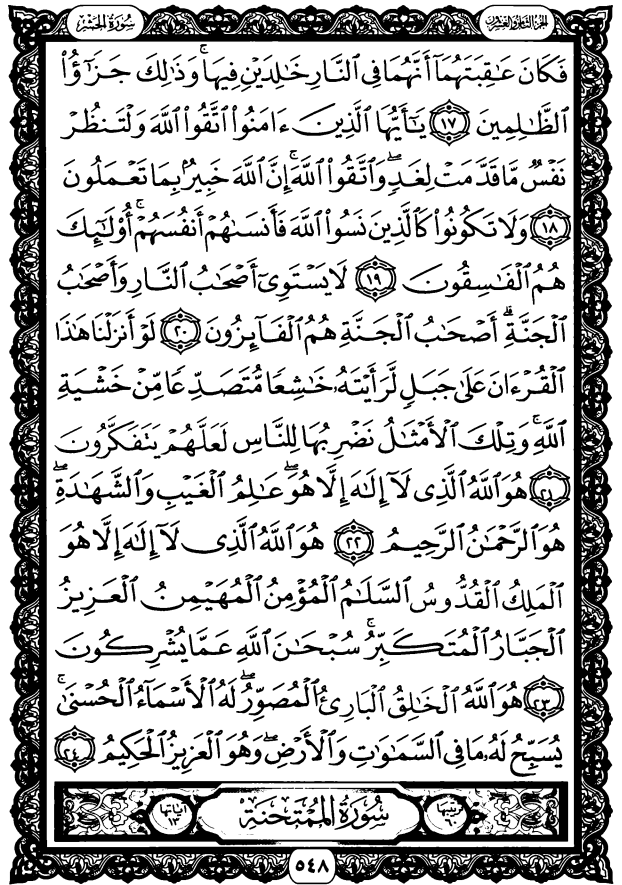 الجزء الثامن والعشرون
سورة الحشر
فَكَانَ عَٰقِبَتَهُمَآ أَنَّهُمَا فِي النَّارِ خَٰلِدَيْنِ فِيهَا ۚ وَذَٰلِكَ جَزَٰٓؤُا۟
الظَّٰلِمِينَ ١٧ يَٰٓأَيُّهَا الَّذِينَ ءَامَنُوا۟ اتَّقُوا۟ اللَّهَ وَلْتَنظُرْ
نَفْسٌ مَّا قَدَّمَتْ لِغَدٍ ۖ وَاتَّقُوا۟ اللَّهَ ۚ إِنَّ اللَّهَ خَبِيرٌۢ بِمَا تَعْمَلُونَ
١٨ وَلَا تَكُونُوا۟ كَالَّذِينَ نَسُوا۟ اللَّهَ فَأَنسَىٰهُمْ أَنفُسَهُمْ ۚ أُو۟لَٰٓئِكَ
هُمُ الْفَٰسِقُونَ ١٩ لَا يَسْتَوِىٓ أَصْحَٰبُ النَّارِ وَأَصْحَٰبُ
الْجَنَّةِ ۚ أَصْحَٰبُ الْجَنَّةِ هُمُ الْفَآئِزُونَ ٢٠ لَوْ أَنزَلْنَا هَٰذَا
الْقُرْءَانَ عَلَىٰ جَبَلٍ لَّرَأَيْتَهُۥ خَٰشِعًا مُّتَصَدِّعًا مِّنْ خَشْيَةِ
اللَّهِ ۚ وَتِلْكَ الْأَمْثَٰلُ نَضْرِبُهَا لِلنَّاسِ لَعَلَّهُمْ يَتَفَكَّرُونَ
٢١ هُوَ اللَّهُ الَّذِى لَآ إِلَٰهَ إِلَّا هُوَ ۖ عَٰلِمُ الْغَيْبِ وَالشَّهَٰدَةِ ۖ
هُوَ الرَّحْمَٰنُ الرَّحِيمُ ٢٢ هُوَ اللَّهُ الَّذِى لَآ إِلَٰهَ إِلَّا هُوَ
الْمَلِكُ الْقُدُّوسُ السَّلَٰمُ الْمُؤْمِنُ الْمُهَيْمِنُ الْعَزِيزُ
الْجَبَّارُ الْمُتَكَبِّرُ ۚ سُبْحَٰنَ اللَّهِ عَمَّا يُشْرِكُونَ
٢٣ هُوَ اللَّهُ الْخَٰلِقُ الْبَارِئُ الْمُصَوِّرُ ۖ لَهُ الْأَسْمَآءُ الْحُسْنَىٰ ۚ
يُسَبِّحُ لَهُۥ مَا فِي السَّمَٰوَٰتِ وَالْأَرْضِ ۖ وَهُوَ الْعَزِيزُ الْحَكِيمُ ٢٤
ترتيبها ٦٠ سُورَةُ الْمُمْتَحنَة آياتها ١٣
٥٤٨